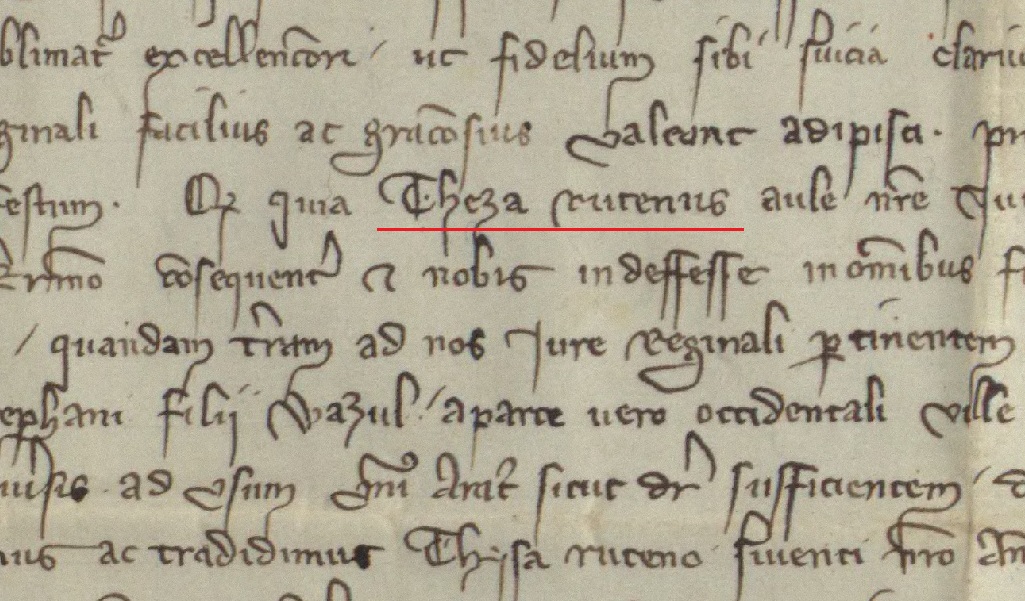 blimat᷑ excellencōri / ut fidelium sibi s̄uicia clariu
ginali facilius ac gracōsius valeant adipisci . pr
festum . Et quia Theza rutenus aule nr̄e Ju
cōsequent᷑ a nobis indeffesse in om̄ibus f
/ quandam tr̄am ad nos Jure Reginali ꝑtinentem
ephani filij Wazul / a parte uero occidentali ville
ad vsum vni᷒ Arat᷑ sicut dr̄ sufficientem /
ac tradidimus Thysa ruteno s̄uienti nr̄o